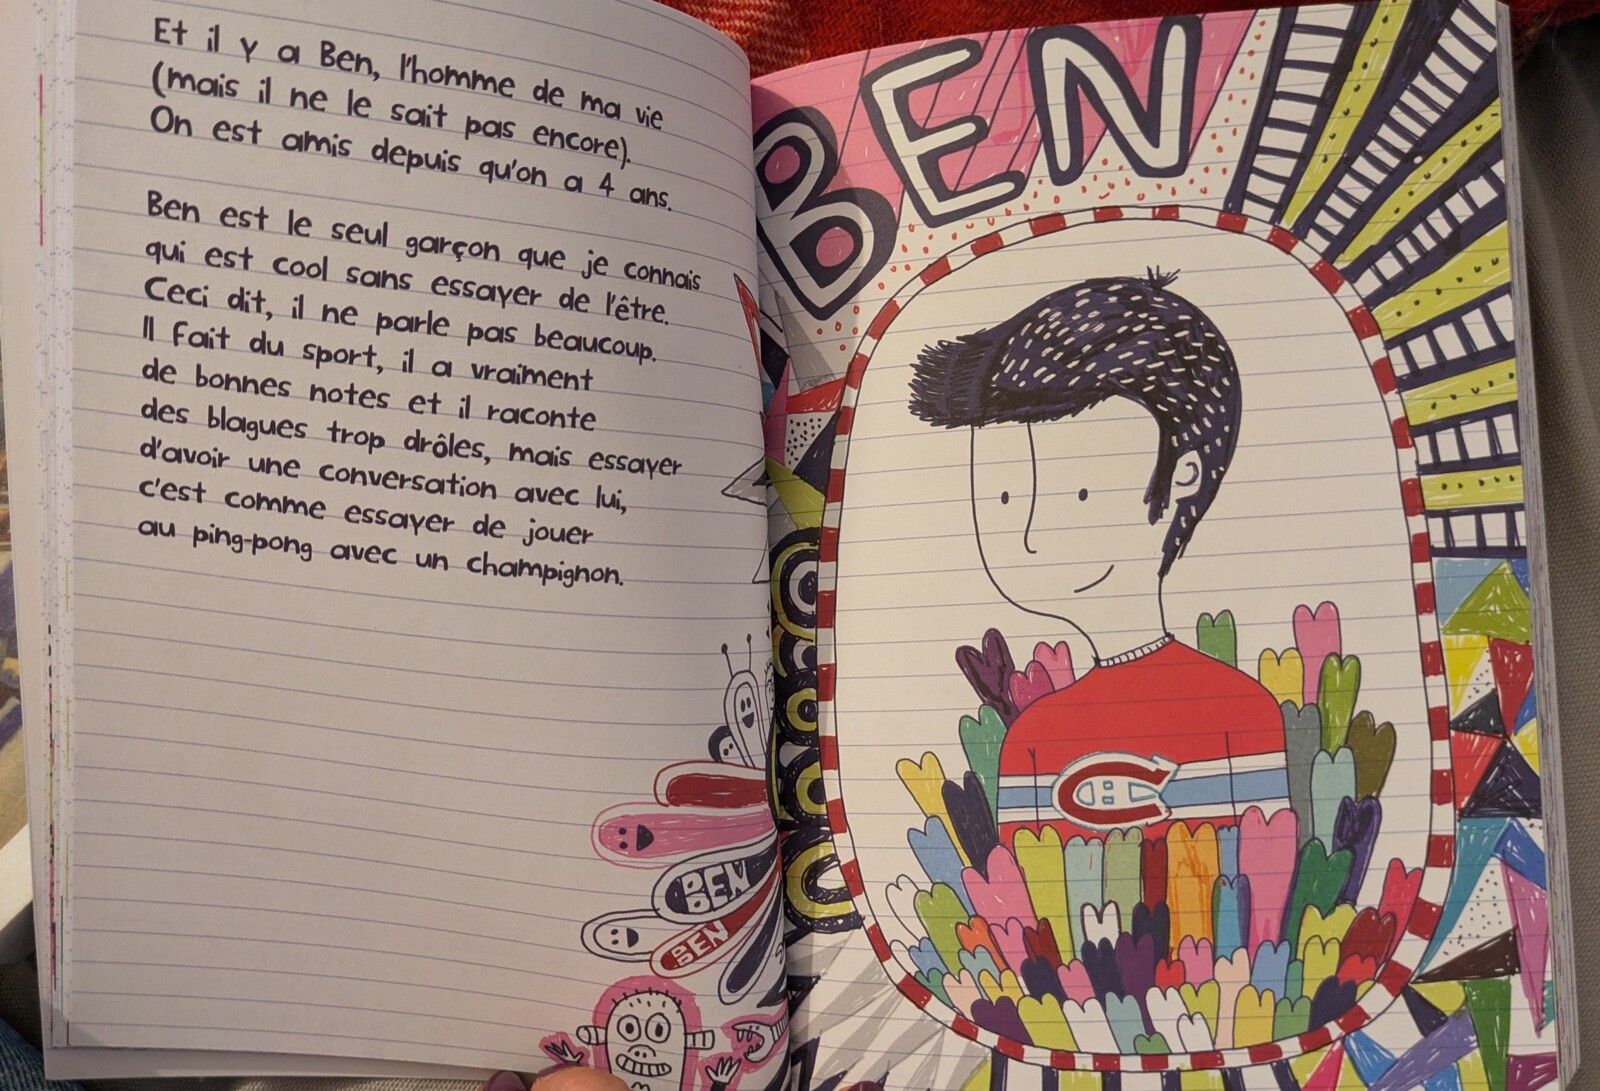 Et il y a Ben, l'homme de ma vie
(mais il ne le sait pas encore).
On est amis depuis qu'on a 4 ans.
Ben est le seul garçon que je connais
qui est cool sans essayer de l'être.
Ceci dit, il ne parle pas beaucoup.
Il fait du sport, il a vraiment
de bonnes notes et il raconte
des blagues trop drôles, mais essayer
d'avoir une conversation avec lui,
c'est comme essayer de jouer
au ping-pong avec un champignon.
BEN
BEN
BEN
CH